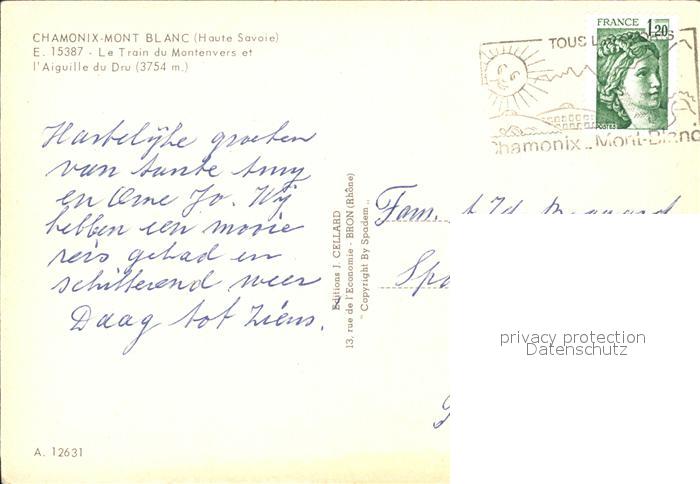 CHAMONIX-MONT BLANC (Haute Savoie)
E. 15387 - Le Train du Montenvers et
l'Aiguille du Dru (3754 m.)
Hartelijke groeten
van tante Amy
en Ome Jo. Wij
hebben een mooie
reis gehad en
schitterend weer
Daag tot ziens.
A. 12631
Editions J. CELLARD
13, rue de l'Economie - BRON (Rhône)
" Copyright By Spadem "
FRANCE 1,20
POSTES
TOUS
Chamonix - Mont-Blanc
Fam.
privacy protection
Datenschutz